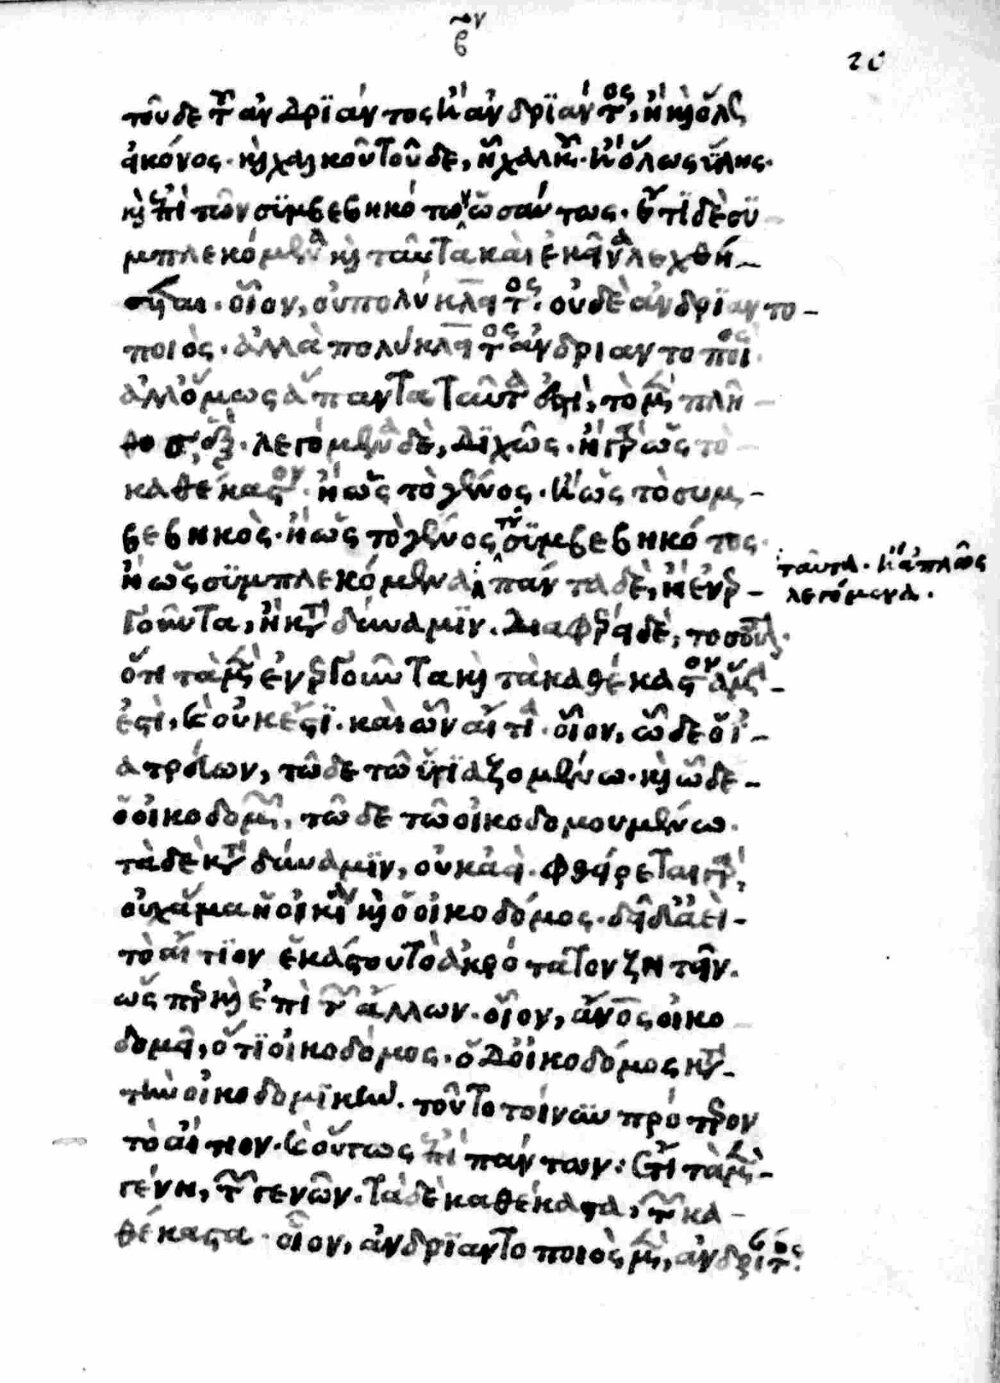 β ον
20
τοῦδε τοῦ ἀνδριάντος ἢ ἀνδριάντος, ἢ καὶ ὅλως
εἰκόνος. καὶ χαλκοῦ τοῦδε, ἢ χαλκοῦ. ἢ ὅλως ὕλης.
καὶ ἐπὶ τῶν συμβεβηκότων ὡσαύτως. ἔτι δὲ συ
μπλεκόμενα καὶ ταῦτα κἀκεῖνα λεχθή-
σεται. οἷον, οὐ πολύκλειτος. οὐδὲ ἀνδριαντο-
ποιὸς. ἀλλὰ πολύκλειτος ἀνδριαντοποιός.
ἀλλ' ὅμως ἅπαντα ταῦτά ἐστι, τὸ μὲν πλῆ-
θος, ἕξ. λεγόμενα δὲ, διχῶς. ἢ γὰρ ὡς τὸ
καθέκαστον. ἢ ὡς τὸ γένος. ἢ ὡς τὸ συμ-
βεβηκὸς. ἢ ὡς τὸ γένος τοῦ συμβεβηκότος.
ἢ ὡς συμπλεκόμενα πάντα δὲ, ἢ ἐνερ-
ταῦτα. ἢ ἁπλῶς
λεγόμενα.
γοῦντα, ἢ κατὰ δύναμιν. διαφέρει δὲ, τοσοῦτον.
ὅτι τὰ μὲν ἐνεργοῦντα καὶ τὰ καθέκαστον ἅμα
ἐστὶ, καὶ οὐκ ἔστι. καὶ ὧν αἴτια. οἷον, ὧδε ὁ ἰ-
ατρεύων, τῶδε τῶ ὑγιαζομένω. καὶ ὧδε
ὁ οἰκοδομῶν, τῶδε τῶ οἰκοδομουμένω.
τὰ δὲ κατὰ δύναμιν, οὐκ ἀεί. φθείρεται γὰρ,
οὐχ ἅμα ἡ οἰκία καὶ ὁ οἰκοδόμος. δεῖ δὲ ἀεὶ
τὸ αἴτιον ἑκάστου τὸ ἀκρότατον ζητεῖν.
ὥσπερ καὶ ἐπὶ τῶν ἄλλων. οἷον, ἄνθρωπος οἰκο
δομεῖ, ὅτι οἰκοδόμος. ὁ δ' οἰκοδόμος κατὰ
τὴν οἰκοδομικήν. τοῦτο τοίνυν πρότερον
τὸ αἴτιον. καὶ οὕτως ἐπὶ πάντων: ἔτι τὰ μὲν
γένη, τῶν γενῶν. τὰ δὲ καθέκαστα, τῶν κα-
θέκαστα. οἷον, ἀνδριαντοποιὸς μὲν, ἀνδριάντος.